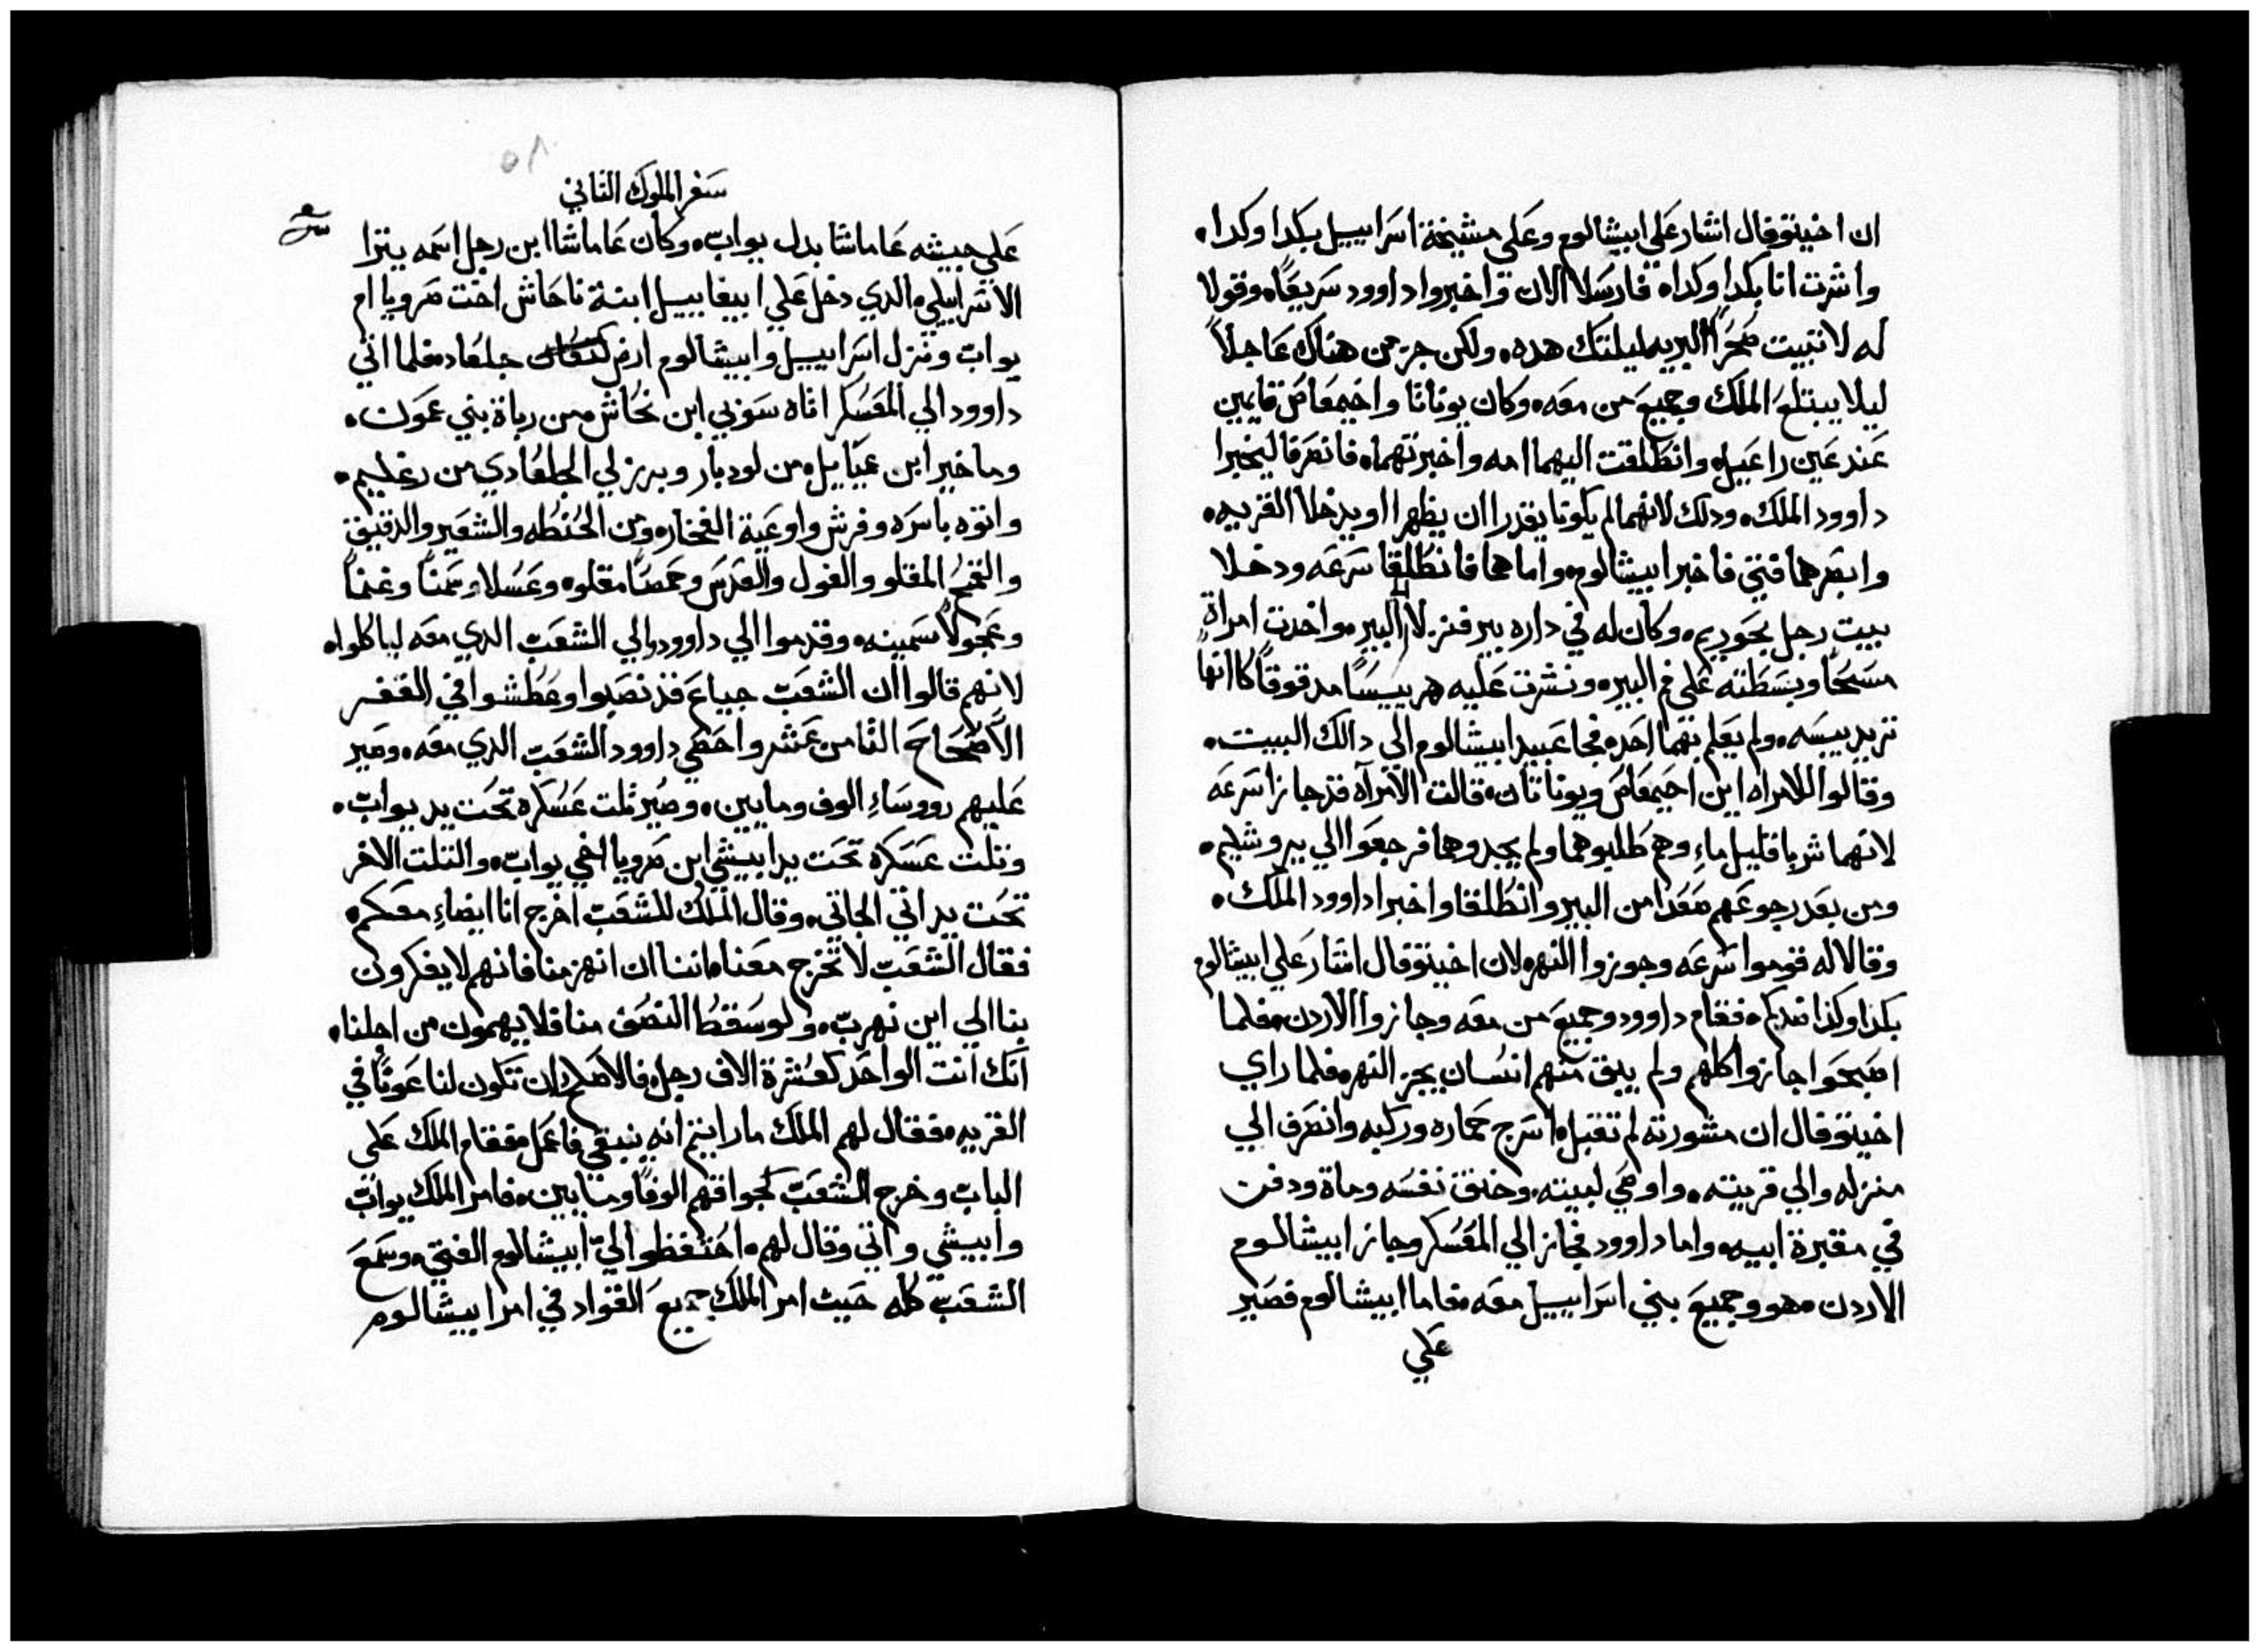 ان اخيتوفال اشار علي ابيشالوم وعلي مشيخة اسراييل بكدا وكدا.
واشرت انا بكدا وكدا. فارسلا الان واخبروا داوود سريعًا. وقولا
له لا تبيت صحرا البريه ليلتك هده. ولكن جز من هناك عاجلاً
ليلا يبتلع الملك وجميع من معه. وكان يوناتا واخيمعاص قايمين
عند عين راعيل. وانطلقت اليهما امه واخبرتهما. فانصرفا ليخبرا
داوود الملك. ودلك لانهما لم يكونا يقدرا ان يظهرا او يدخلا القريه.
وابصرهما فتي فاخبر ابيشالوم. واما هما فانطلقا سرعه ودخلا
بيت رجل بحوريم. وكان له في داره بير فنزلا الي البير. واخدت امراة
مسحًا وبسطته علي فم البير. ونشرت عليه هريسًا مدقوقًا كانها
تريد يبسه. ولم يعلم بهما احد. فجا عبيد ابيشالوم الي دالك البيت.
وقالوا للامراه اين احيمعاص ويوناتان. قالت الامرآه قد جازا سرعه
لانهما شربا قليل ماءِ وهم طلبوهما ولم يجدوهما فرجعوا الي يروشليم.
ومن بعد رجوعهم صعدا من البير وانطلقا واخبرا داوود الملك.
وقالا له قوموا سرعه وجوزوا النهر. لان اخيتوفال اشار علي ابيشالوم
بكذا وكذا ضدكم. فقام داوود وجميع من معه وجازوا الاردن. فلما
اصبحوا جازوا كلهم ولم يبق منهم انسان يجز النهر. فلما راي
اخيتوفال ان مشورته لم تقبل. اسرج حماره وركبه وانصرف الي
منزله والي قريته. واوصي لبيته. وخنق نفسه وماة ودفن
في مقبرة ابيه. واما داوود فجاز الي المعسكر وجاز ابيشالوم
الاردن. هو وجميع بني اسراييل معه. فاما ابيشالوم فصير
علي
٥٨
سفر الملوك التاني
علي جيشه عاماشا بدل يواب. وكان عاماشا ابن رجل اسمه يترا
الاسراييلي. الدي دخل علي ابيغاييل ابنة ناحاش اخت صرويا ام
يواب ونزل اسراييل وابيشالوم ارض جلعاد. فلما اتي
داوود الي المعسكر اتاه سوبي ابن نحاش. من رباة بني عمون.
وماخير ابن عيّاييل. من لودبار وبرزلي الجلعادي من رغليم.
واتوه باسره وفرش واوعية الفخار. ومن الحنطه والشعير والدقيق
والقمح المقلو والفول والعدس وحمصًا مقلو. وعسلا وسمنًا وغنماً
وعجولاً سمينه. وقدموا الي داوود والي الشعب الدي معه لياكلوا.
لانهم قالوا ان الشعب جياع قد نصبوا وعطشوا في القفر
الاصحاح التامن عشر واحصي داوود الشعب الدي معه. وصير
عليهم رووساءِ الوف ومايين. وصير تلت عسكره تحت يد يواب.
وتلت عسكره تحت يد ابيشي ابن صرويا اخي يواب. والتلت الاخر
تحت يد اتي الجاتي. وقال الملك للشعب اخرج انا ايضاءِ معكم.
فقال الشعب لا تخرج معنا. اننا ان انهزمنا فانهم لا يفكرون
بنا الي اين نهرب. ولو سقط النصف منا فلا يهمون من اجلنا.
انك انت الواحد كعشرة الاف رجل. فالاصلح ان تكون لنا عونًا في
القريه. فقال لهم الملك ما رايتم انه ينبغي فاعمل. فقام الملك علي
الباب وخرج الشعب لجوافهم الوفًا ومايين. فامر الملك يواب
وابيشي واتي وقال لهم. احتفظوا اليّ ابيشالوم الفتي. وسمع
الشعب كله حيث امر الملك جميع القواد في امر ابيشالوم